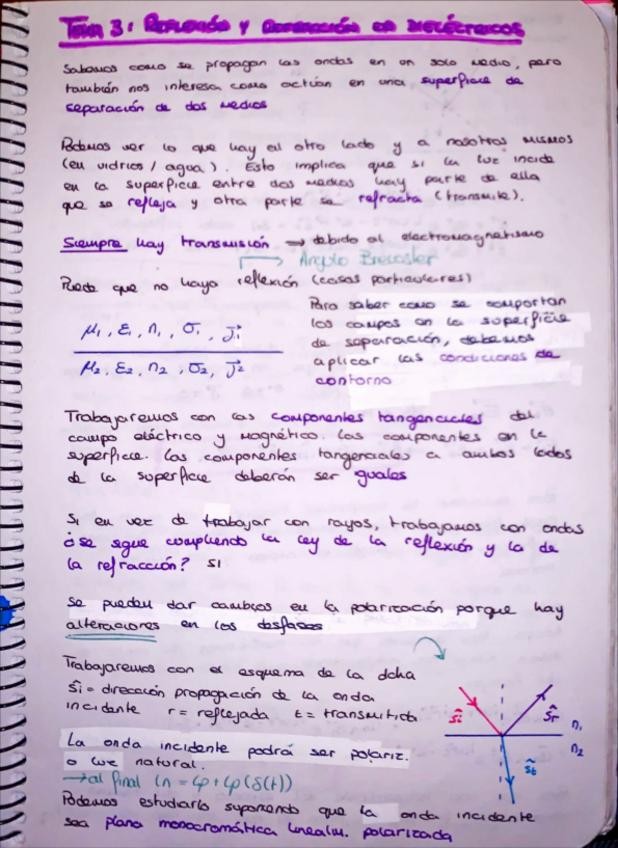 TEMA 3: REFLEXIÓN Y REFRACCIÓN EN DIELÉCTRICOS
Sabemos como se propagan las ondas en un solo medio, pero
también nos interesa como actúan en una superficie de
separación de dos medios
Podemos ver lo que hay al otro lado y a nosotros mismos
(en vidrios / agua). Esto implica que si la luz incide
en la superficie entre dos medios hay parte de ella
que se refleja y otra parte se refracta (transmite).
Siempre hay transmisión → debido al electromagnetismo
Ángulo Brewster
Puede que no haya reflexión (casos particulares)
μ1, ε1, n1, σ1, j1
μ2, ε2, n2, σ2, j2
Para saber como se comportan
los campos en la superficie
de separación, debemos
aplicar las condiciones de
contorno
Trabajaremos con las componentes tangenciales del
campo eléctrico y magnético. Las componentes en la
superficie. Las componentes tangenciales a ambos lados
de la superficie deberán ser iguales
Si en vez de trabajar con rayos, trabajamos con ondas
¿se sigue cumpliendo la ley de la reflexión y la de
la refracción? SI
Se pueden dar cambios en la polarización porque hay
alteraciones en los desfases
Trabajaremos con el esquema de la dcha
ŝi = dirección propagación de la onda
incidente r = reflejada t = transmitida
ŝi ŝr n1
n2
ŝt
La onda incidente podrá ser polariz.
o luz natural.
→ al final (n = φ + φ(δ(t))
Podemos estudiarlo suponiendo que la onda incidente
sea plana monocromática linealm. polarizada